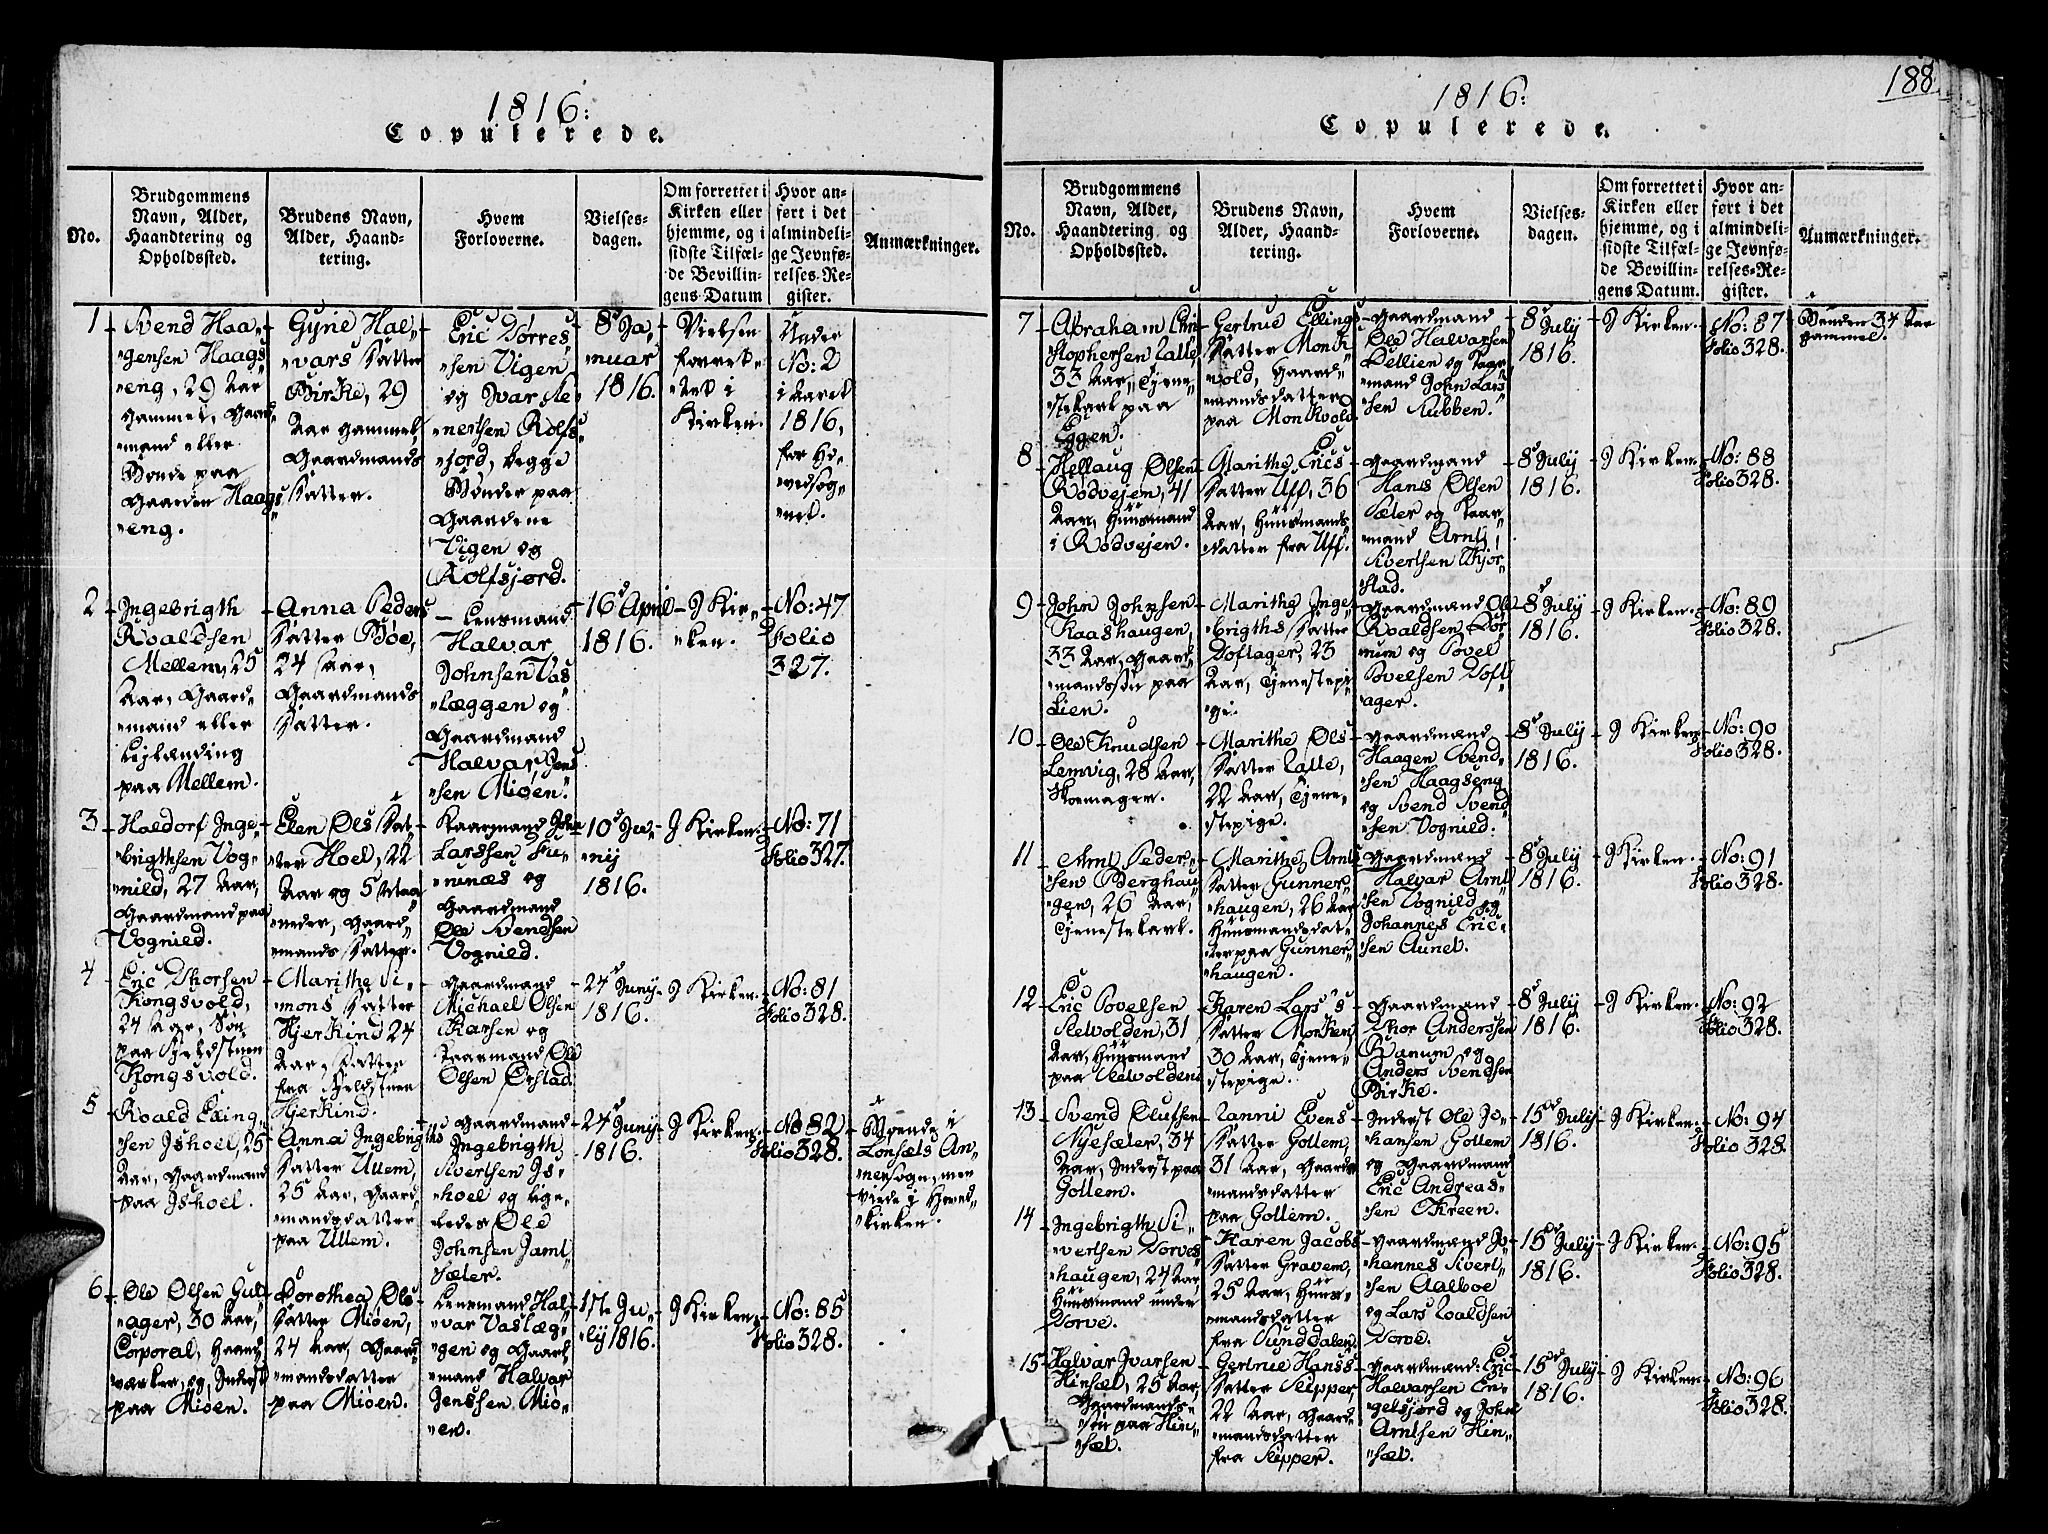 1816:
Copulerede.
No.
Brudgommens
Navn, Alder,
Haandtering og
Opholdssted.
Brudens Navn,
Alder, Haand-
tering.
Hvem
Forloverne.
Vielses-
dagen.
Om forrettet i
Kirken eller
hjemme, og i
sidste Tilfæl-
de Bevillin-
gens Datum
Hvor an-
ført i det
almindeli-
ge Jevnfø-
relses-Re-
gister.
Anmærkninger.
1
Svend Haa-
gensen Haags-
eng, 29 Aar
gammel, Gaard-
mand eller
Bonde paa
Gaarden Haags-
eng.
Gyrie Hal-
vars Datter
Birke, 29
Aar gammel,
Gaardmands
Datter.
Eric Torres-
sen Vigen
og Ivar Ste-
nertsen Rolfs-
jord, begge
Bønder paa
Gaardene
Vigen og
Rolfsjord.
8d Ja-
nuar
1816.
Vielsen
forret-
tet i
Kirken.
Under
No: 2
i Aaret
1816,
for Ho-
vedsog-
net.
2
Ingebrigth
Roaldsen
Mellem, 25
Aar, Gaard-
mand eller
Leylænding
paa Mellem.
Anna Peders
Datter Bøe,
24 Aar,
Gaardmands
Datter.
Lensmand
Halvar
Johnsen Vas-
læggen og
Gaardmand
Halvar Jens-
sen Miøen.
16d April
1816.
I Kir-
ken.
No: 47
Folio
327.
3
Haldorf Inge-
brigthsen Vog-
nild, 27 Aar,
Gaardmand paa
Vognild.
Elen Ols Dat-
ter Hoel, 22
Aar og 5 Maa-
neder, Gaard-
mands Datter.
Gaardmand John
Larssen Fu-
nunæs og
Gaardmand
Ole Svendsen
Vognild.
10d Ju-
nij
1816.
I Kirken.
No: 71
Folio 327.
4
Eric Thorsen
Kongsvold,
24 Aar, Søn
paa Fjeldstuen
Kongsvold.
Marithe Si-
mons Datter
Hjerkind 24
Aar, Datter
fra Fjeldstuen
Hjerkind.
Gaardmand
Michael Olsen
og
Gaardmand Ole
Olsen Ørstad
24d Junij
1816.
I Kirken.
No: 81
Folio 328.
5
Roald Elling-
sen Ishoel, 25
Aar, Gaardmand
paa Ishoel.
Anna Ingebrigths
Datter Ullem,
25 Aar, Gaard-
mandsdatter
paa Ullem.
Gaardmand
Ingebrigth
Sivertsen Is-
hoel og lige-
ledes Ole
Johnsen Jamt-
sæter.
24d Junij
1816.
I Kirken.
No 82
Folio 328.
i
Lonsets An-
nexsogn, men
viede i Hoved-
kirken.
6
Ole Olsen Gul-
ager, 30 Aar,
Corporal, Haand-
værker, og Inderst
paa Miøen.
Dorothea Ols
Datter Miøen,
24 Aar, Gaard-
mandsdatter
paa Miøen.
Lensmand Hal-
var Vaslæg-
gen og Gaard-
mand Halvar
Jenssen Miø-
en.
1ste Ju-
ly 1816.
I Kirken.
No: 85
Folio 328.
188
1816:
Copulerede.
No.
Brudgommens
Navn, Alder,
Haandtering og
Opholdssted.
Brudens Navn,
Alder, Haand-
tering.
Hvem
Forloverne.
Vielses-
dagen.
Om forrettet i
Kirken eller
hjemme, og i
sidste Tilfæl-
de Bevillin-
gens Datum.
Hvor an-
ført i det
almindeli-
ge Jevnfø-
relses-Re-
gister.
Anmærkninger.
7
Abraham Chri-
stophersen Lalle,
33 Aar, Tjene-
stekarl paa
Eggen.
Gertrue Ellings
Datter Monk-
vold, Gaard-
mandsdatter
paa Monkvold
Gaardmand
Ole Halvarsen
Detlien og Gaar-
mand John Lars-
sen Stubben.
8d July
1816.
I Kirken.
No: 87
Folio 328.
34 Aar
gammel.
8
Hellaug Olsen
Rødvejen, 41
Aar, Huusmand
i Rødvejen.
Marithe Erics
Datter Uff, 36
Aar, Huusmands-
datter fra Uff.
Gaardmand
Hans Olsen
Sæter og Gaar-
mand Arnt
Sivertsen Thjor-
stad.
8d July
1816.
I Kirken.
No: 88
Folio 328.
9
John Johnsen
Kaashaugen,
33 Aar, Gaard-
mandssøn paa
Lien.
Marithe Inge-
brigths Datter
Toftager, 23
Aar, Tjenestepi-
ge.
Gaardmand Ole
Roaldsen Dor-
mim og Povel
Povelsen Toft-
ager.
8d July
1816.
I Kirken.
No: 89
Folio 328.
10
Ole Knudsen
Lemvig, 28 Aar,
Skomager.
Marithe Ols
Datter Lalle,
22 Aar, Tjene-
stepige.
Gaardmand
Haagen Svend-
sen Haagseng
og Svend Svend-
sen Vognild.
8d July
1816.
I Kirken.
No: 90
Folio 328.
11
Arnt Peder-
sen Berghau-
gen, 26 Aar,
Tjenestekarl.
Marithe Arnts
Datter Gunner-
haugen, 26 Aar
Huusmandsdat-
ter paa Gunner-
haugen.
Gaardmand
Halvar Arnt-
sen Vognild og
Johannes Eric-
sen Aunet.
8d July
1816.
I Kirken.
No: 91
Folio 328.
12
Eric Povelsen
Selvolden, 31
Aar, Huusmand
paa Selvolden
Karen Lars's
Datter Monken
30 Aar, Tjene-
stepige.
Gaardmand
Thor Anderssen
Ranum og
Anders Svendsen
Birke.
8d July
1816.
I Kirken.
No: 92
Folio 328.
13
Svend Olufsen
Nyesæter, 34
Aar, Inderst paa
Gollem.
Lanni Evens
Datter Gollem,
31 Aar, Gaard-
mandsdatter
paa Gollem.
Inderst Ole Jo-
hansen Gollem
og Gaardmand
Eric Andreas-
sen Kreen.
15de July
1816.
I Kirken.
No: 94
Folio 328.
14
Ingebrigth Si-
vertsen Dorves-
haugen, 24 Aar,
Huusmand under
Dorve.
Karen Jacobs
Datter Gravem,
25 Aar, Huus-
mandsdatter
fra Sunddalen.
Gaardmand Jo-
hannes Sivert-
sen Aalboe
og Lars Roaldsen
Dorve.
15de July
1816.
I Kirken.
No: 95
Folio 328.
15
Halvar Ivarsen
Hinsæt, 25 Aar,
Gaardmands-
søn paa Hin-
sæt.
Gertrue Hans's
Datter Slipper
22 Aar, Gaard-
mandsdatter
fra Slipper.
Gaardmand: Eric
Halvarsen En-
gelsjord og John
Arntsen Hin-
sæt.
15de July
1816.
I Kirken.
No: 96
Folio 328.